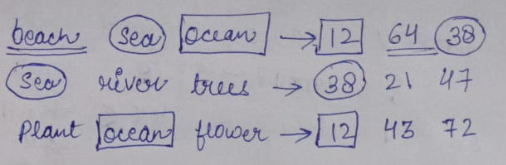 beach sea ocean → 12 64 38
sea river trees → 38 21 47
Plant ocean flower → 12 43 72